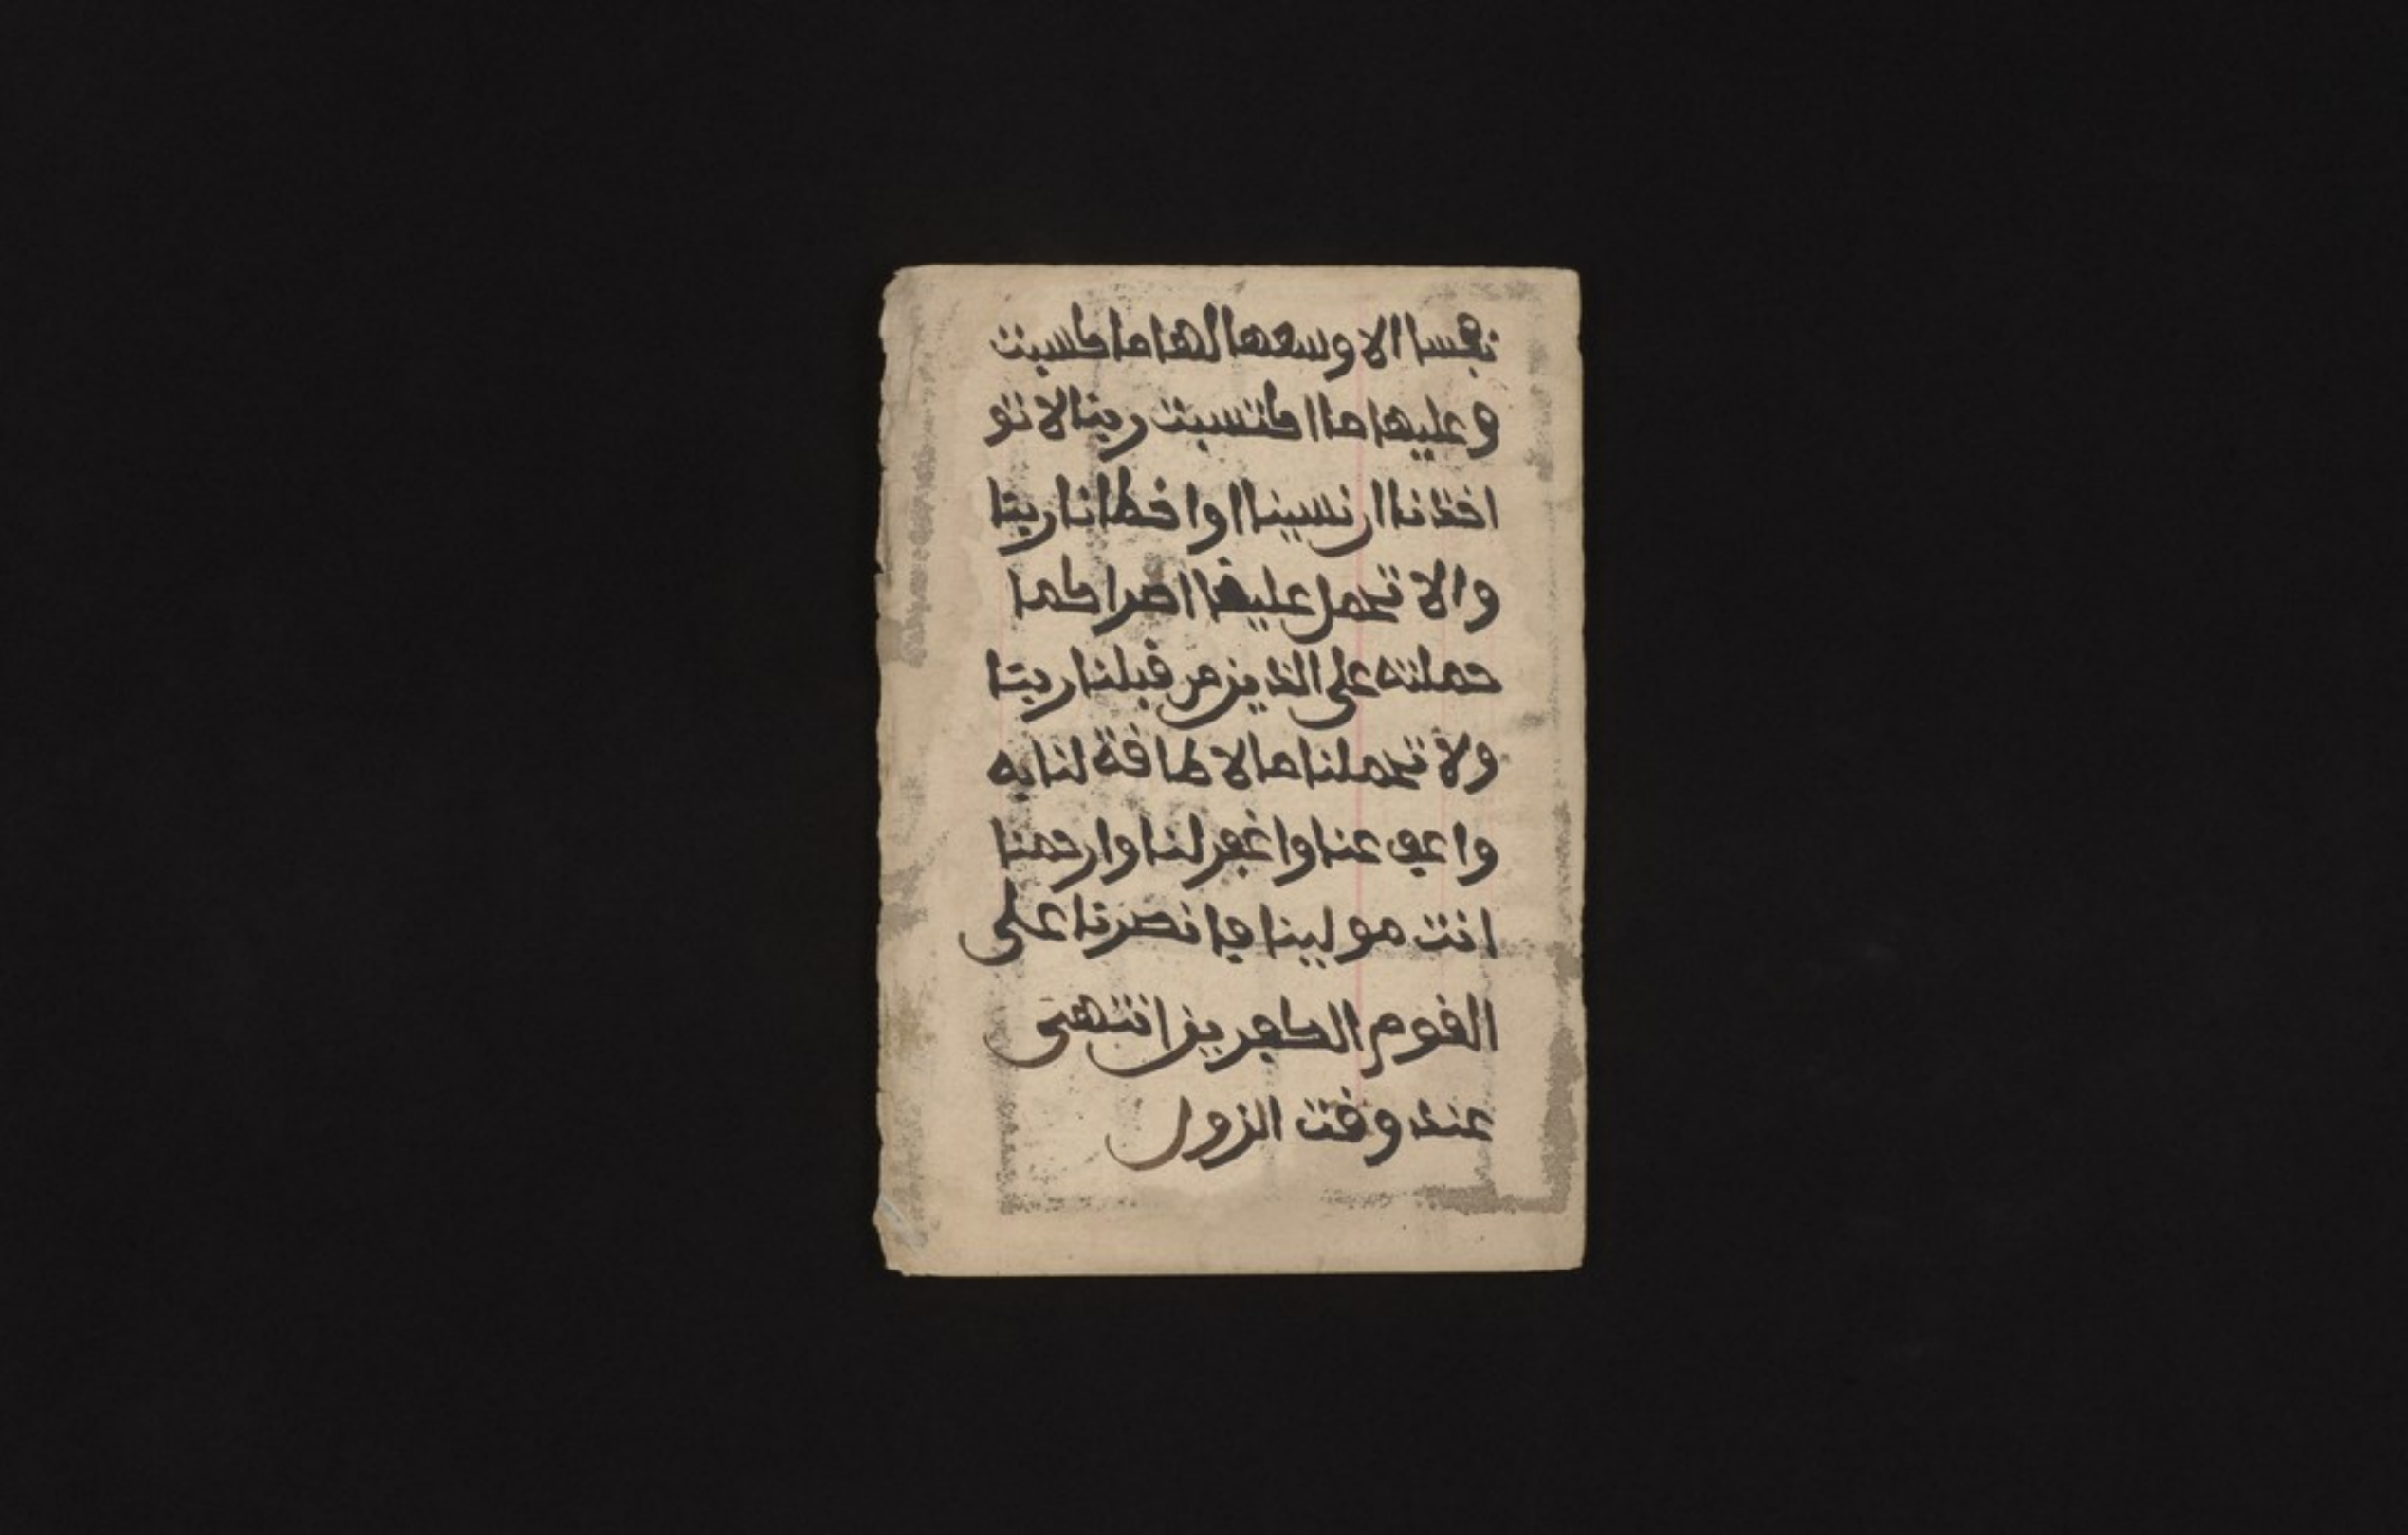 نفسا الا وسعها لها ما كسبت
وعليها ما اكتسبت ربنا لا تو
اخذنا ان نسينا اوا خطانا ربنا
والا تحمل علينا اصرا كما
حملته على الذين من قبلنا ربنا
ولا تحملنا مالا طاقة لنا به
واعف عنا واغفر لنا وارحمنا
انت مولينا فانصرنا على
القوم الكافرين انتهى
عند وقت الزول